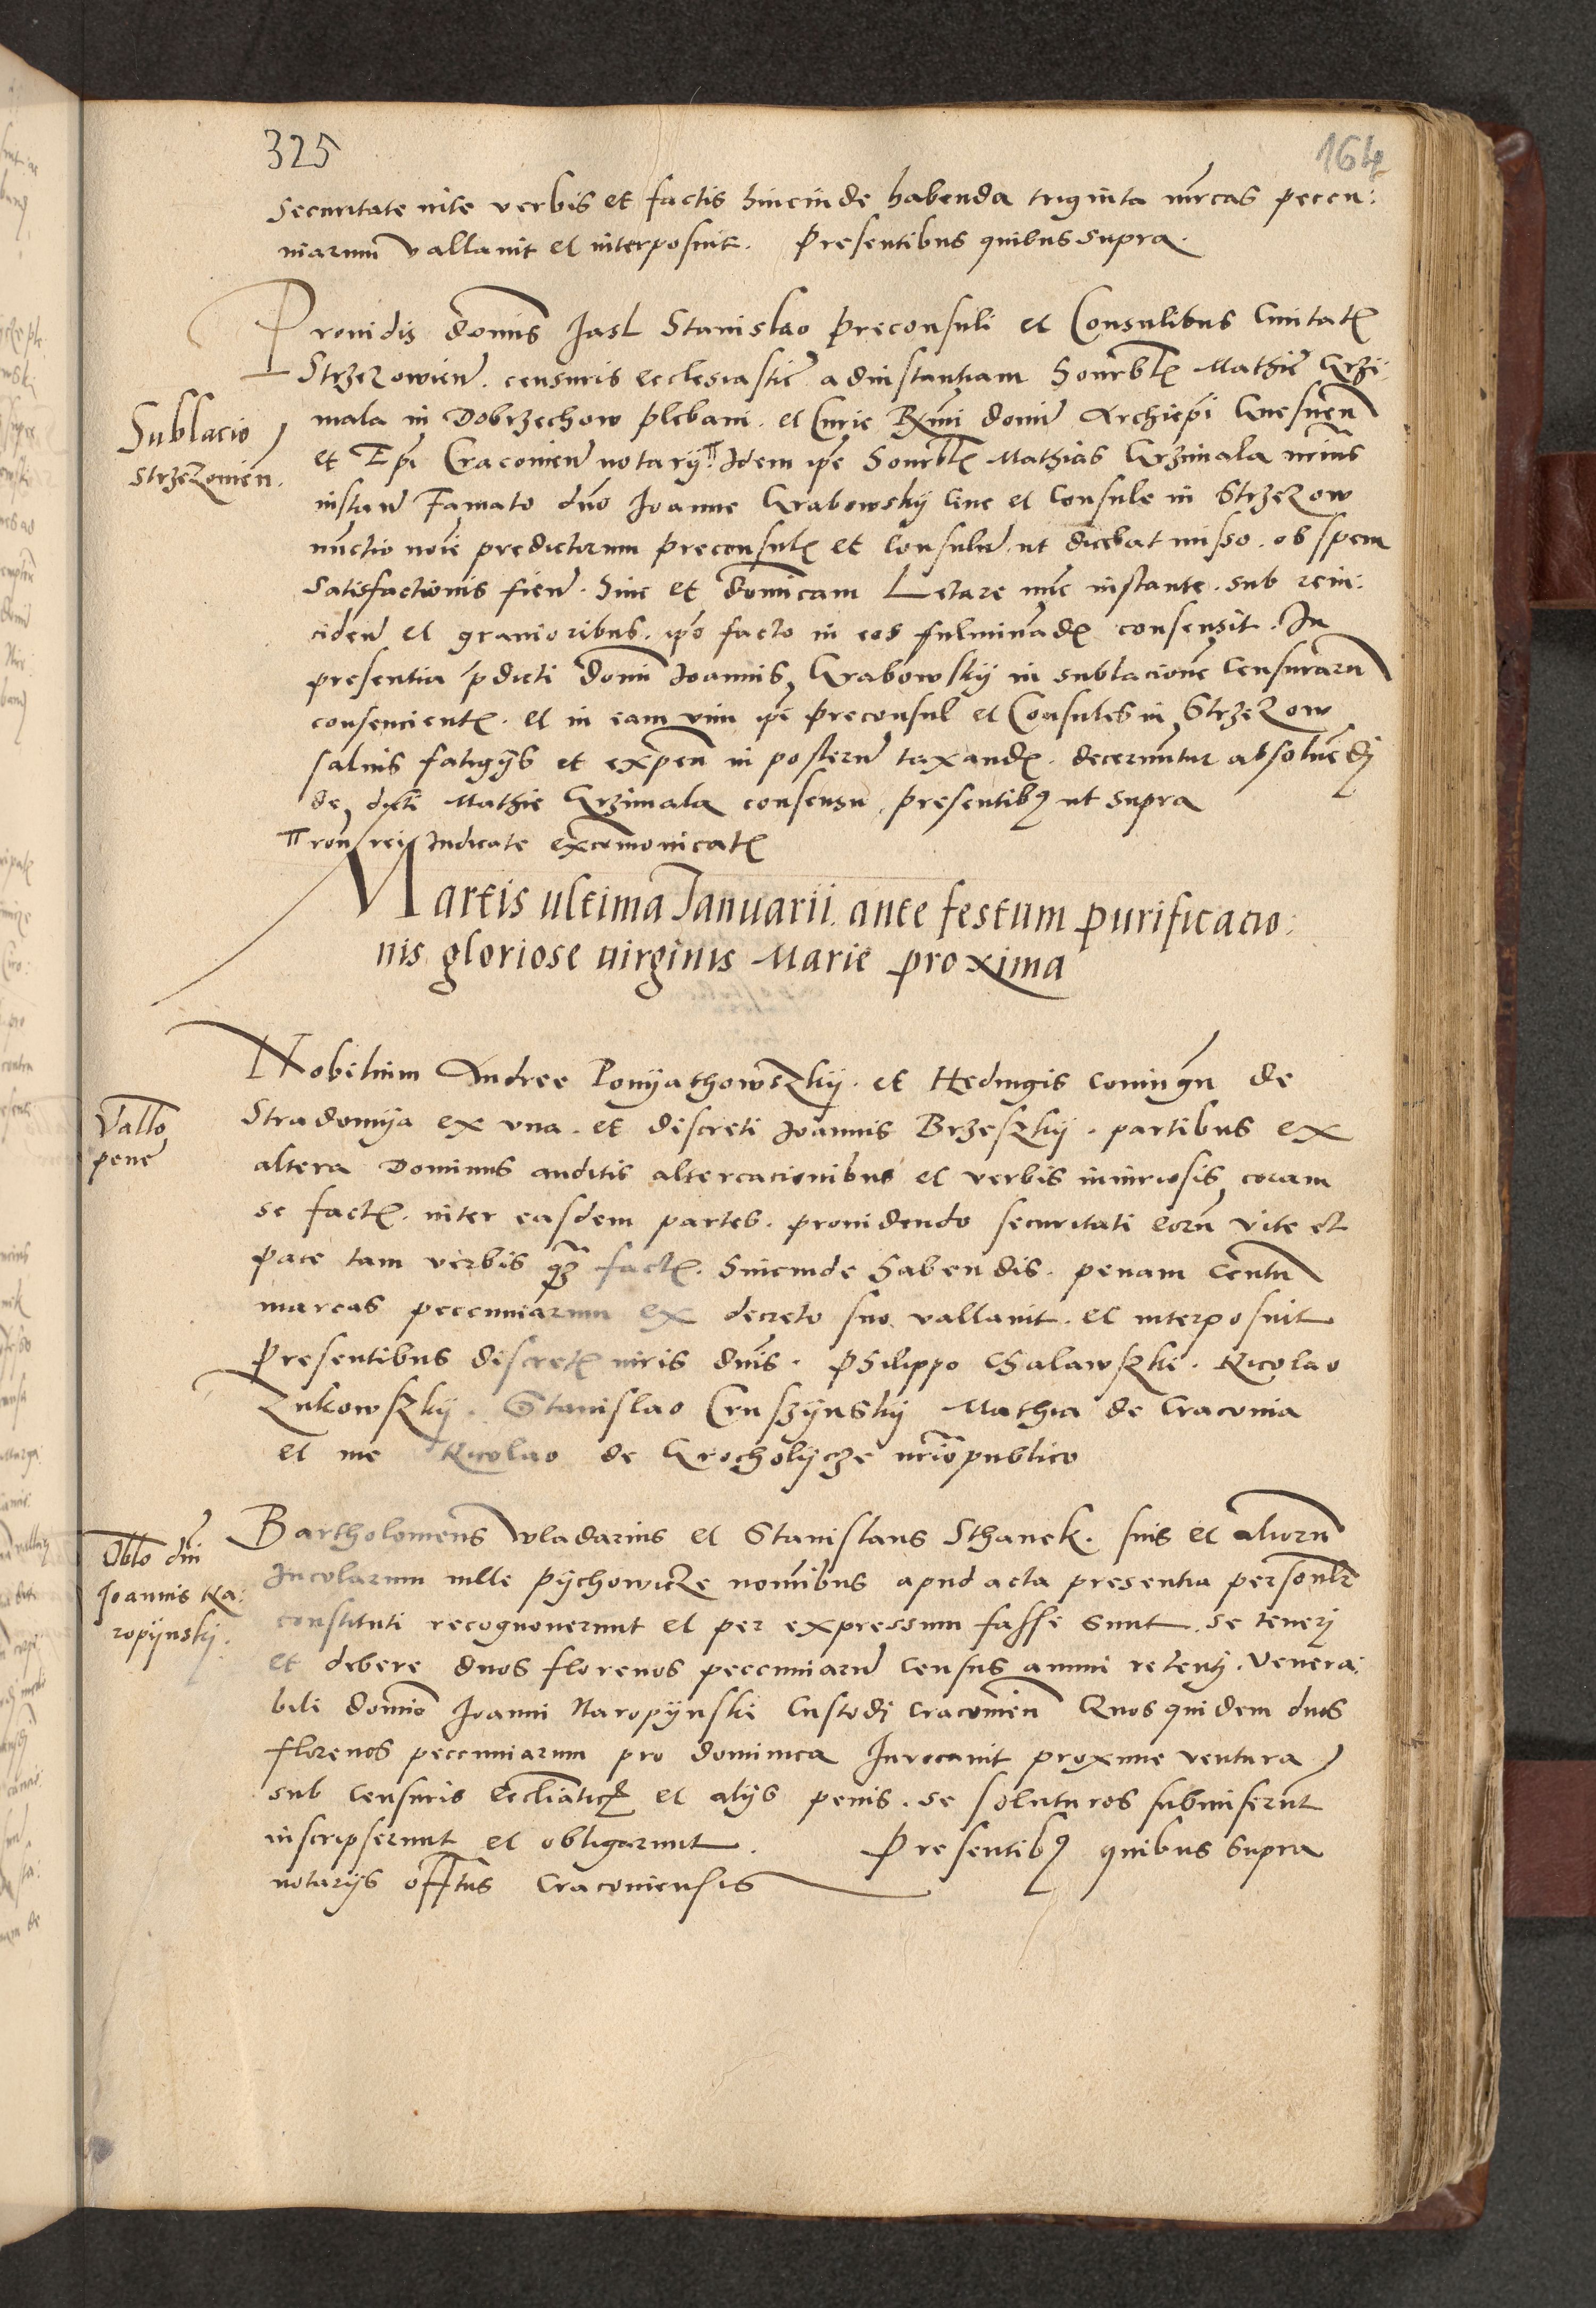 325
164
securitate vite verbis et factis hincinde habenda triginta mrcas pecu:
niarum vallavit et interposuit. Presentibus quibus supra
Providis domis Jasl Stanislao preconsuli et Consulibus Civitat
Strzezowien. censuris ecclesiastic ad instantiam honrbl Mathie Grzi:
Sublacio
Strzezowien.
mala in Dobrzechow plebani. et Curie Rmi domi Archiepi Gnesnen
et Epi Cracovien notarij Idem ipe honrbl Mathias Grzimala
instan Famato dno Joanne Grabowsky Cive et Consule in Strzezow
nunctio noie predictorum preconsul et Consulum ut dicebat misso. ob spem
satisfactionis fien. hinc et domicam Letare nunc instante. sub rein:
ciden et gravioribus. ipo facto in eos fulminad consensit. In
presentia pdicti domi Joannis Grabowsky in sublacione Censurarum
consencient. et in eam vim ipi preconsul et Consules in Strzezow
salvis fatigijs et expen in posterum taxand. decernuntur absolvedj
de dicti Mathie Grzimala consensu presentibus ut supra
ron rei Iudicate excomonicat
Martis ultima Januarii ante festum purificacio:
nis gloriose virginis Marie proxima
Nobilium Andree Ponyathowszky. et Hedvigis coniugu de
Vallo
pene
Stradomya ex una. et discreti Joannis Brzeszky. partibus ex
altera Dominus auditis altercacionibus et verbis iniuriosis coram
se fact. inter easdem partes. providendo securitati eorum vite et
pace tam verbis qz fact. hincinde habendis. penam Centum
marcas pecuniarum ex decreto suo vallavit. et interposuit
Presentibus discret viris dnis. Philippo Chalawszki. Nicolao
Zukowszky. Stanislao Cruszynsky Mathia de Cracovia
et me Nicolao de Grocholycze nrio publico
Oblo dni
Joannis Ka:
ropynskj.
Bartholomeus wladarius et Stanislaus Sthanek. suis et aliorum
Incolarum ville Pychowicze nominibus apud acta presentia personlr
constituti recognoverunt et per expressum fassi sunt. se tenerj
et debere duos florenos pecuniarum Census annui retentj. Venera:
bili domio Joanni Karopynski Custodj Cracovien Quos quidem duos
florenos pecuniarum pro dominica Invocavit proxime ventura
sub Censuris Ecclīatic et alijs penis. se soluturos submiserunt
inscripserunt et obligarunt. Presentibus quibus supra
notarijs offtus Cracoviensis